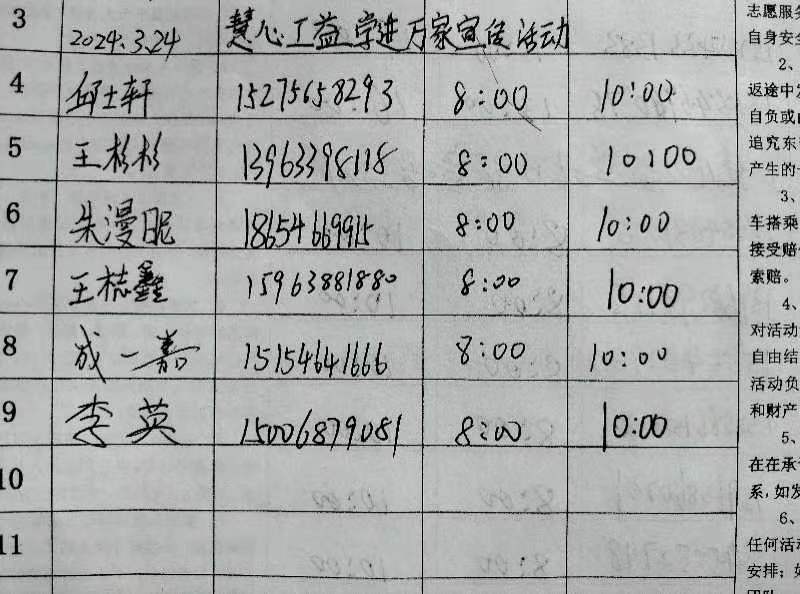 3 2024.3.24 慧心工益学进万家宣传活动
4 邱士轩 15275658293 8:00 10:00
5 王杉杉 13963398118 8:00 10:00
6 朱漫昵 18654669915 8:00 10:00
7 王梽鑫 15963881880 8:00 10:00
8 成一嘉 15154641666 8:00 10:00
9 李英 15006879081 8:00 10:00
10
11
志愿服务
自身安全
2、
返途中发
自负或由
追究东
产生的一
3、
车搭乘
接受赔
索赔。
4、
对活动
自由结
活动负
和财产
5、
在在承
系,如发
6、
任何活动
安排;如
团队